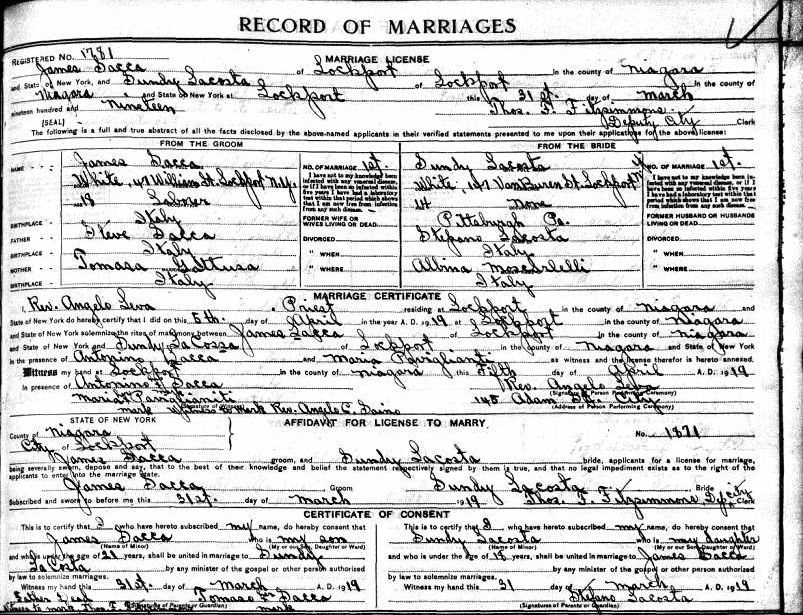 RECORD OF MARRIAGES
REGISTERED NO. 1781
MARRIAGE LICENSE
James Sacca of Lockport in the county of Niagara
and State of New York, and Sundy Lacosta of Lockport in the county of
Niagara and State of New York at Lockport this 31st. day of March
nineteen hundred and Nineteen Thos. F. Fitzsimmons
[SEAL] Deputy City Clerk
The following is a full and true abstract of all the facts disclosed by the above-named applicants in their verified statements presented to me upon their applications for the above license:
FROM THE GROOM
FROM THE BRIDE
NAME James Sacca
White, 47 William St. Lockport N.Y.
19 Laborer
BIRTHPLACE Italy
FATHER Steve Sacca
BIRTHPLACE Italy
MOTHER Tomasa Gattusa
BIRTHPLACE Italy
NO. OF MARRIAGE 1st.
I have not to my knowledge been infected with any venereal disease, or if I have been so infected within five years I have had a laboratory test within that period which shows that I am now free from infection from any such disease.
FORMER WIFE OR WIVES LIVING OR DEAD
DIVORCED
" WHEN
" WHERE
Sundy Lacosta
White 187 VanBuren St. Lockport
14 None
Pittsburgh Pa.
Stefano Lacosta
Italy
Albina
Italy
NO. OF MARRIAGE 1st.
I have not to my knowledge been infected with any venereal disease, or if I have been so infected within five years I have had a laboratory test within that period which shows that I am now free from infection from any such disease.
FORMER HUSBAND OR HUSBANDS LIVING OR DEAD
DIVORCED
" WHEN
" WHERE
MARRIAGE CERTIFICATE
I, Rev. Angelo Leva a Priest residing at Lockport in the county of Niagara and
State of New York do hereby certify that I did on this 5th. day of April in the year A. D. 1919 at Lockport in the county of Niagara
and State of New York solemnize the rites of matrimony between James Sacca of Lockport in the county of Niagara
and State of New York and Sundy LaCossa of Lockport in the county of Niagara and State of New York
in the presence of Antonino Sacca and Maria as witness and the license therefor is hereto annexed.
Witness my hand at Lockport in the county of Niagara this Fifth day of April A. D. 1919
In presence of Antonino Sacca Rev. Angelo Leva
(Signature of Person Performing Ceremony)
Maria
145 Adam St. City
mark Witness to Mark Rev. Angelo
(Address of Person Performing Ceremony)
STATE OF NEW YORK
AFFIDAVIT FOR LICENSE TO MARRY
County of Niagara
No. 1871
City of Lockport
James Sacca groom, and Sundy Lacosta bride, applicants for a license for marriage,
being severally sworn, depose and say, that to the best of their knowledge and belief the statement respectively signed by them is true, and that no legal impediment exists as to the right of the
applicants to enter into the marriage state.
James Sacca Groom Sundy Lacosta Bride
Subscribed and sworn to before me this 31st. day of March 1919 Thos. F. Fitzsimmons Dep. City Clerk
CERTIFICATE OF CONSENT
This is to certify that I who have hereto subscribed my name, do hereby consent that
James Sacca who is my son
(Name of Minor) (My or our Son, Daughter or Ward)
and who is under the age of 21 years, shall be united in marriage to Sundy
LaCosta by any minister of the gospel or other person authorized
by law to solemnize marriages.
Witness my hand this 31st. day of March A. D. 1919
Father dead Tomaso her Sacca
Witness to mark Thos. F. mark
(Signatures of Parents or Guardian)
This is to certify that I who have hereto subscribed my name, do hereby consent that
Sundy Lacosta who is my daughter
(Name of Minor) (My or our Son, Daughter or Ward)
and who is under the age of 18 years, shall be united in marriage to James Sacca
by any minister of the gospel or other person authorized
by law to solemnize marriages.
Witness my hand this 31 day of March A. D. 1919
Stefano Lacosta
(Signatures of Parents or Guardian)